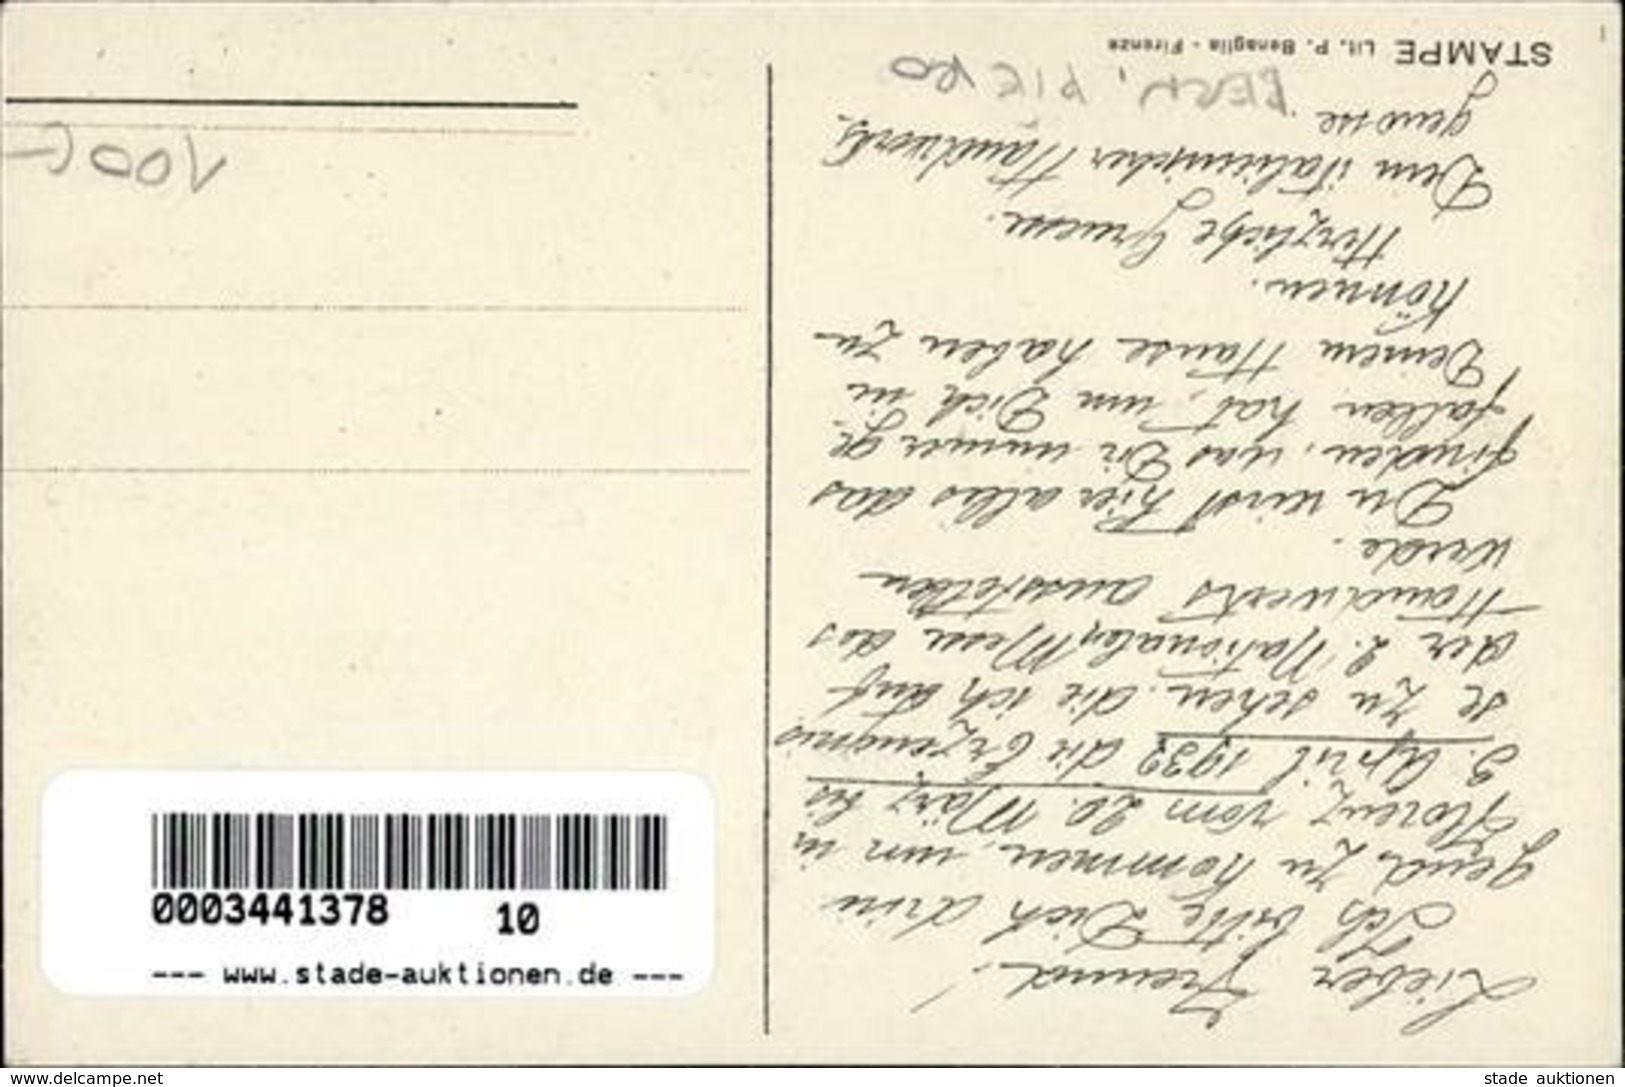 Lieber Freund!
Ich bitte Dich drin
gend, zu kommen, um in
Florenz vom 20. März bis
3. April 1932 die Erzeugnis
se zu sehen, die ich auf
der 2. Nationalen Messe des
Handwerks ausstellen
werde.
Du wirst hier alles das
finden, was Dir immer ge-
fallen hat, um Dich in
Deinem Hause haben zu
können.
Herzliche Gruesse.
Dein italienischer Handwerks-
genosse.
PIERO
STAMPE Lit. P. Benaglia - Firenze
100
0003441378 10
--- www.stade-auktionen.de ---
www.delcampe.net
stade auktionen